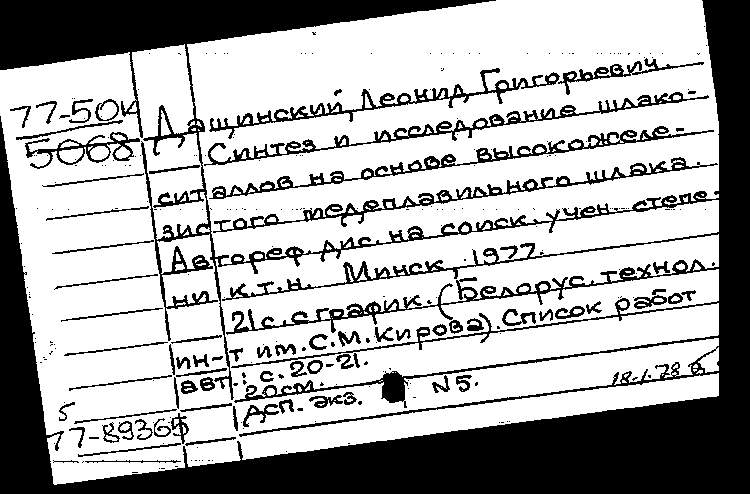 77-50к
5068
Дащинский, Леонид Григорьевич.
Синтез и исследование шлако-
ситаллов на основе высокожеле-
зистого медеплавильного шлака.
Автореф. дис. на соиск. учен. степе-
ни к.т.н. Минск, 1977.
21с. с график. (Белорус. технол.
ин-т им. С.М. Кирова). Список работ
авт.: с. 20-21.
20см.
Дсп. экз. N5.
18.1.78
5
77-89365